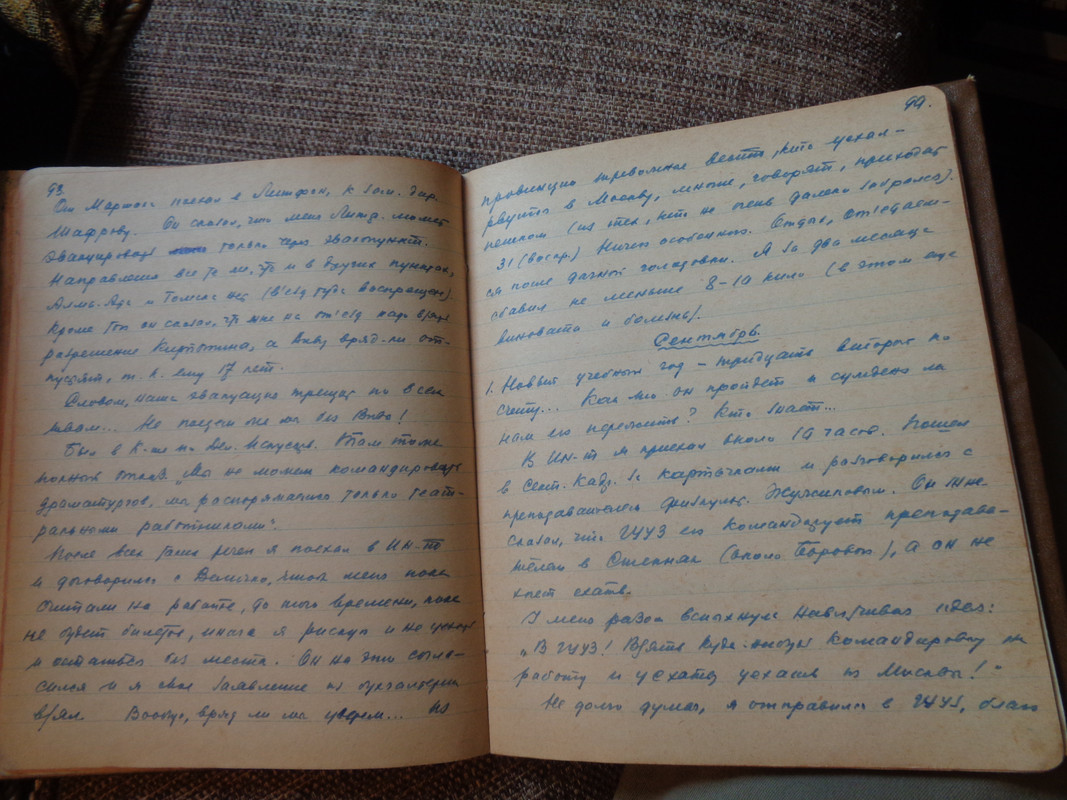 93.
От Маршака поехал в Литфонд, к зам. дир.
Шафрову. Он сказал, что меня Литф. может
эвакуировать только через эвакопункт.
Направления все те же, что и в других пунктах,
Алма-Ата и Томска нет (въезд туда воспрещен).
Кроме того он сказал, что мне на отъезд надо взять
разрешение Кирпотина, а Виву вряд-ли от-
пустят, т. к. ему 17 лет.
Словом, наша эвакуация трещит по всем
швам... Не поедем же мы без Вивы!
Был в К-те по дел. Искусств. Там тоже
полный отказ: „Мы не можем командировать
драматургов, мы распоряжаемся только теат-
ральными работниками".
После всех этих речей я поехал в Ин-т
и договорился с Величко, чтоб меня пока
считали на работе, до того времени, пока
не будет билетов, иначе я рискую и не уехать
и остаться без места. Он на это согла-
сился и я свое заявление из бухгалтерии
взял. Вообще, вряд ли мы уедем... Из
94.
провинции тревожные вести, кто уехал -
рвутся в Москву, иные, говорят, приходят
пешком (из тех, кто не очень далеко забрался).
31 (воскр.) Ничего особенного. Отдых, отъедаем-
ся после дачной голодовки. Я за два месяца
сбавил не меньше 8-10 кило (в этом еще
виновата и болезнь).
Сентябрь.
1. Новый учебный год - тридцать второй по
счету... Как-то он пройдет и суждено ли
нам его пережить? Кто знает...
В Ин-т я приехал около 10 часов. Пошел
в Сект. Кадр. за карточками и разговорился с
преподавателем физкульт. Жучиповым. Он мне
сказал, что ГУУЗ его командирует преподава-
телем в Степняк (около Борового), а он не
хочет ехать.
У меня разом вспыхнула навязчивая идея:
„В ГУУЗ! Взять куда-нибудь командировку на
работу и уехать, уехать из Москвы!"
Не долго думая, я отправился в ГУУЗ, благо